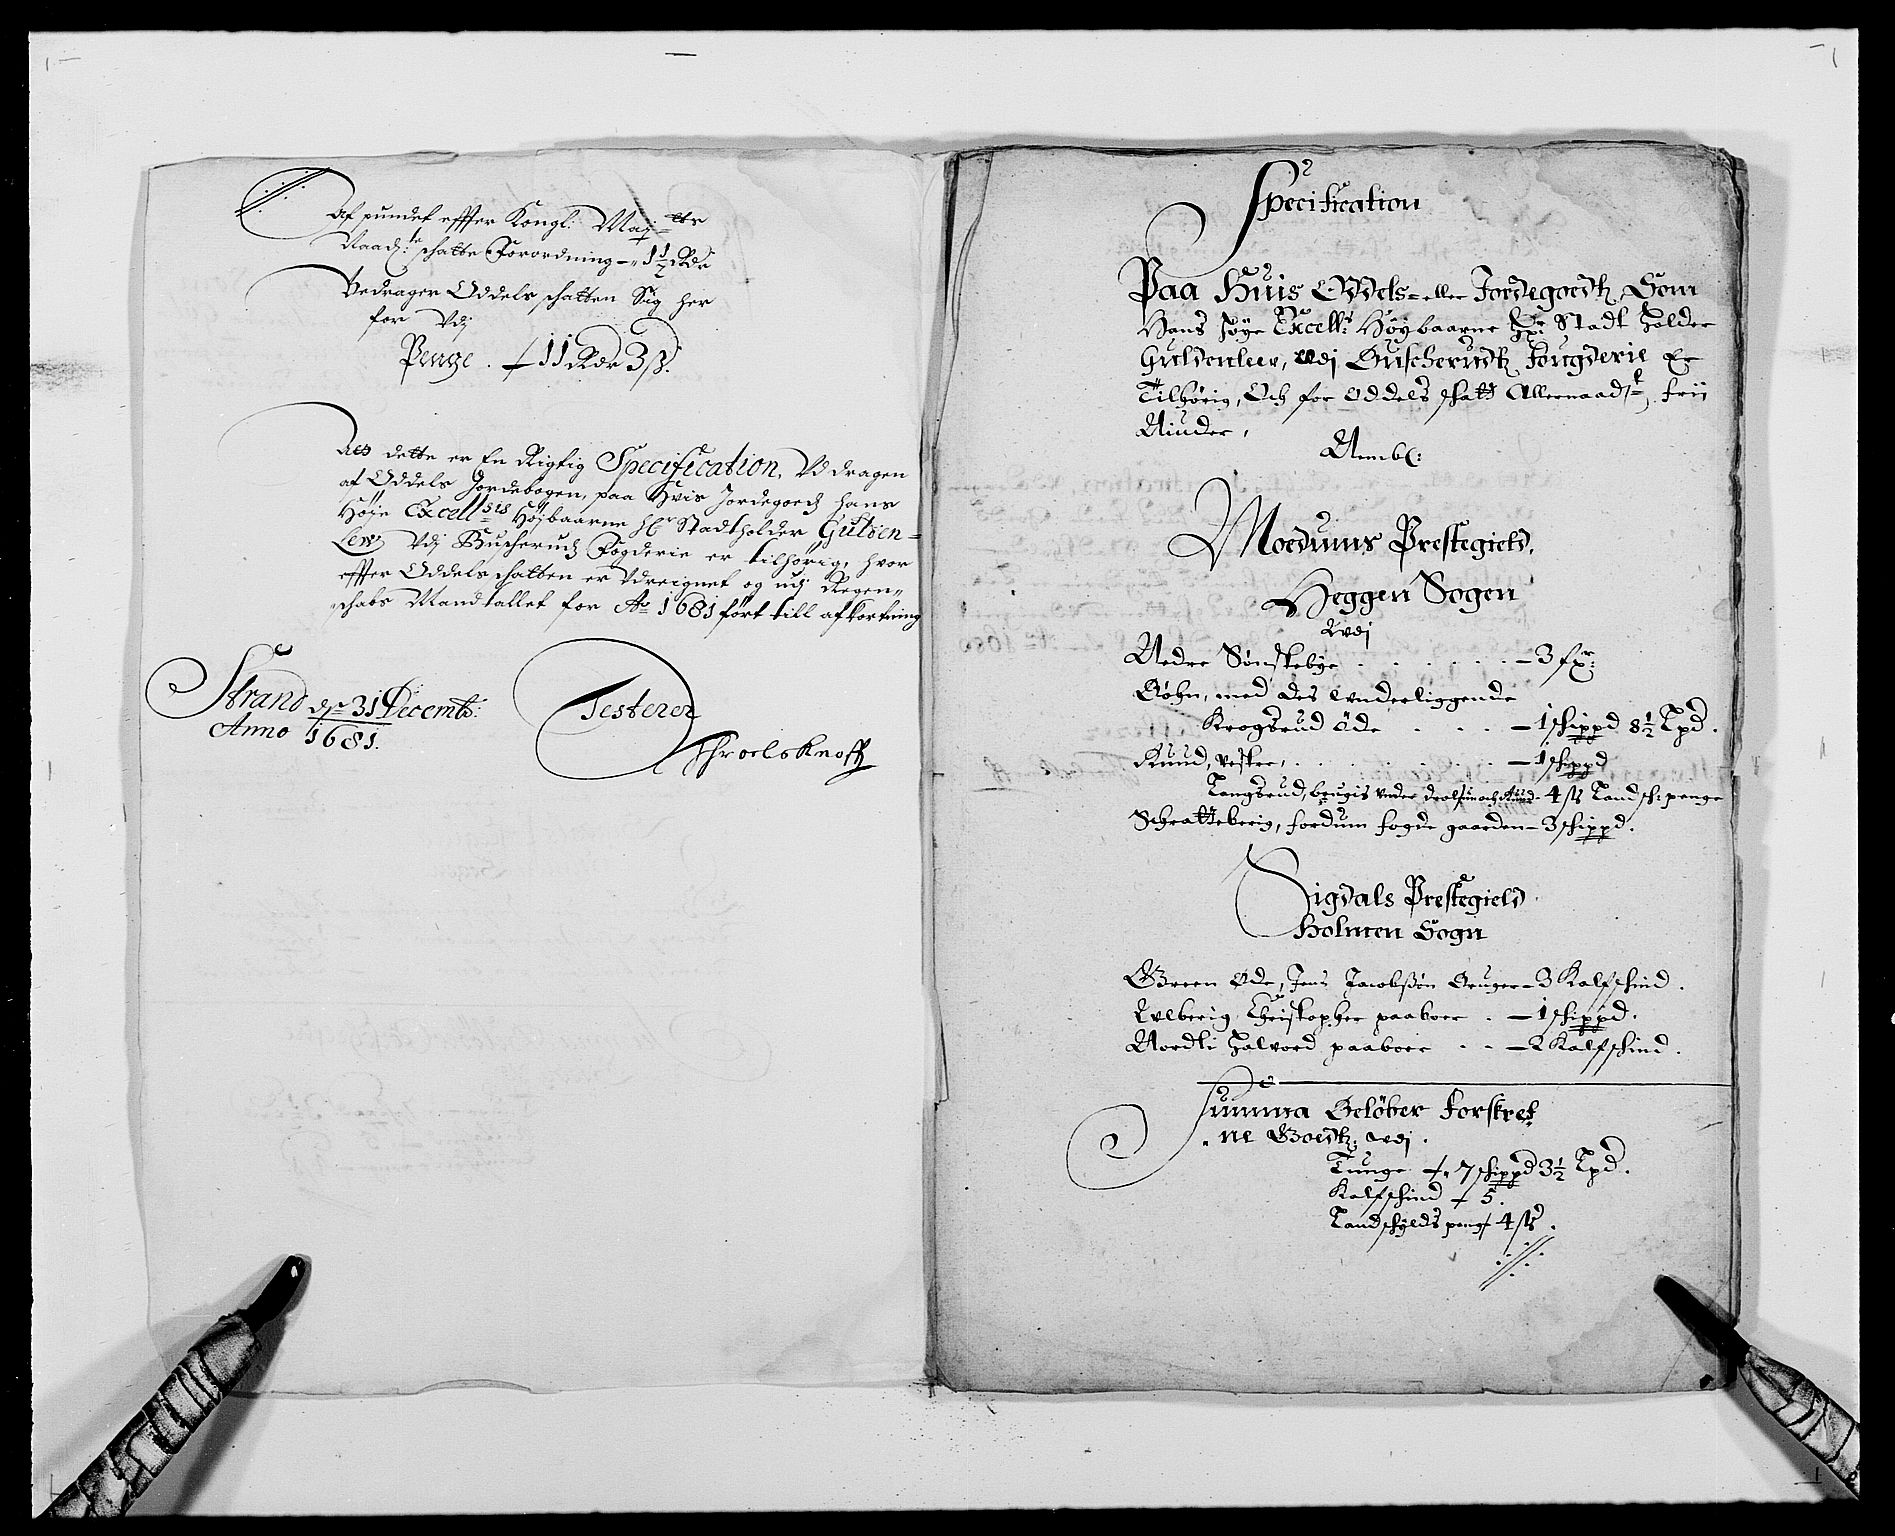 Af pundet effter Kongl: Maj:tts
Naad:te schatte Forordning — 1½ Rdr
Bedrager Oddels schatten Sig her
for Vdj
Penge . — 11 Rdr 3 ß.
At dette er En Rigtig Specification, Vddragen
af Oddels Jordebogen, paa Hvis Jordegoeds hans
Høje Excell:ses Højbaarne Hr Stadtholder Gulden=
Lew, Vdj Buscheruds Fogderie er tilhørig, hvor
effter Oddelschatten er Vdreignet og udj Regen=
schabs Mandtallet for Ao 1681 ført till afkortning
Strand dn 31 Decemb:
Anno 1681.
Testerer
Throels Knoff
Specification
Paa Huis Oddels= eller Jordegoedtz Som
Hans høye Excell:s Høybaarne Hr: Stadt holder
Guldenleer, udj Buscherudtz fougderie Er
Tilhørig, Och for Oddels schatt Allernaadst: frii
Niuder,
Nembl:
Moedums Prestegield.
Heggen Sogen
Uvdj
Nedre Sønstebye . . . . . . — 3 fr:
Bøhn, med des Underliggende
Krogsrud Øde . . . — 1 schippd 8½ Lpd.
Ruud, vester, . . . . . . — 1 schippd
Langsrud, brugis under och Ruud — 4 ß Landsch: penge
Schratteberig, fordum fogde gaarden — 3 schippd.
Sigdals Prestegield
Holmen Sogn
Green Øde, Jens Jacobßøn Bruger — 3 Kalfschind.
Ulberig Christopher paaboer . — 1 schippd.
Nordli Halvord paaboer . . — 2 Kalfschind.
Summa Beløber forskref
ne Goedtz: udj.
Tunge — 7 schippd 3½ Lpd.
Kalfschind — 5.
Landschylds peng — 4 ß.